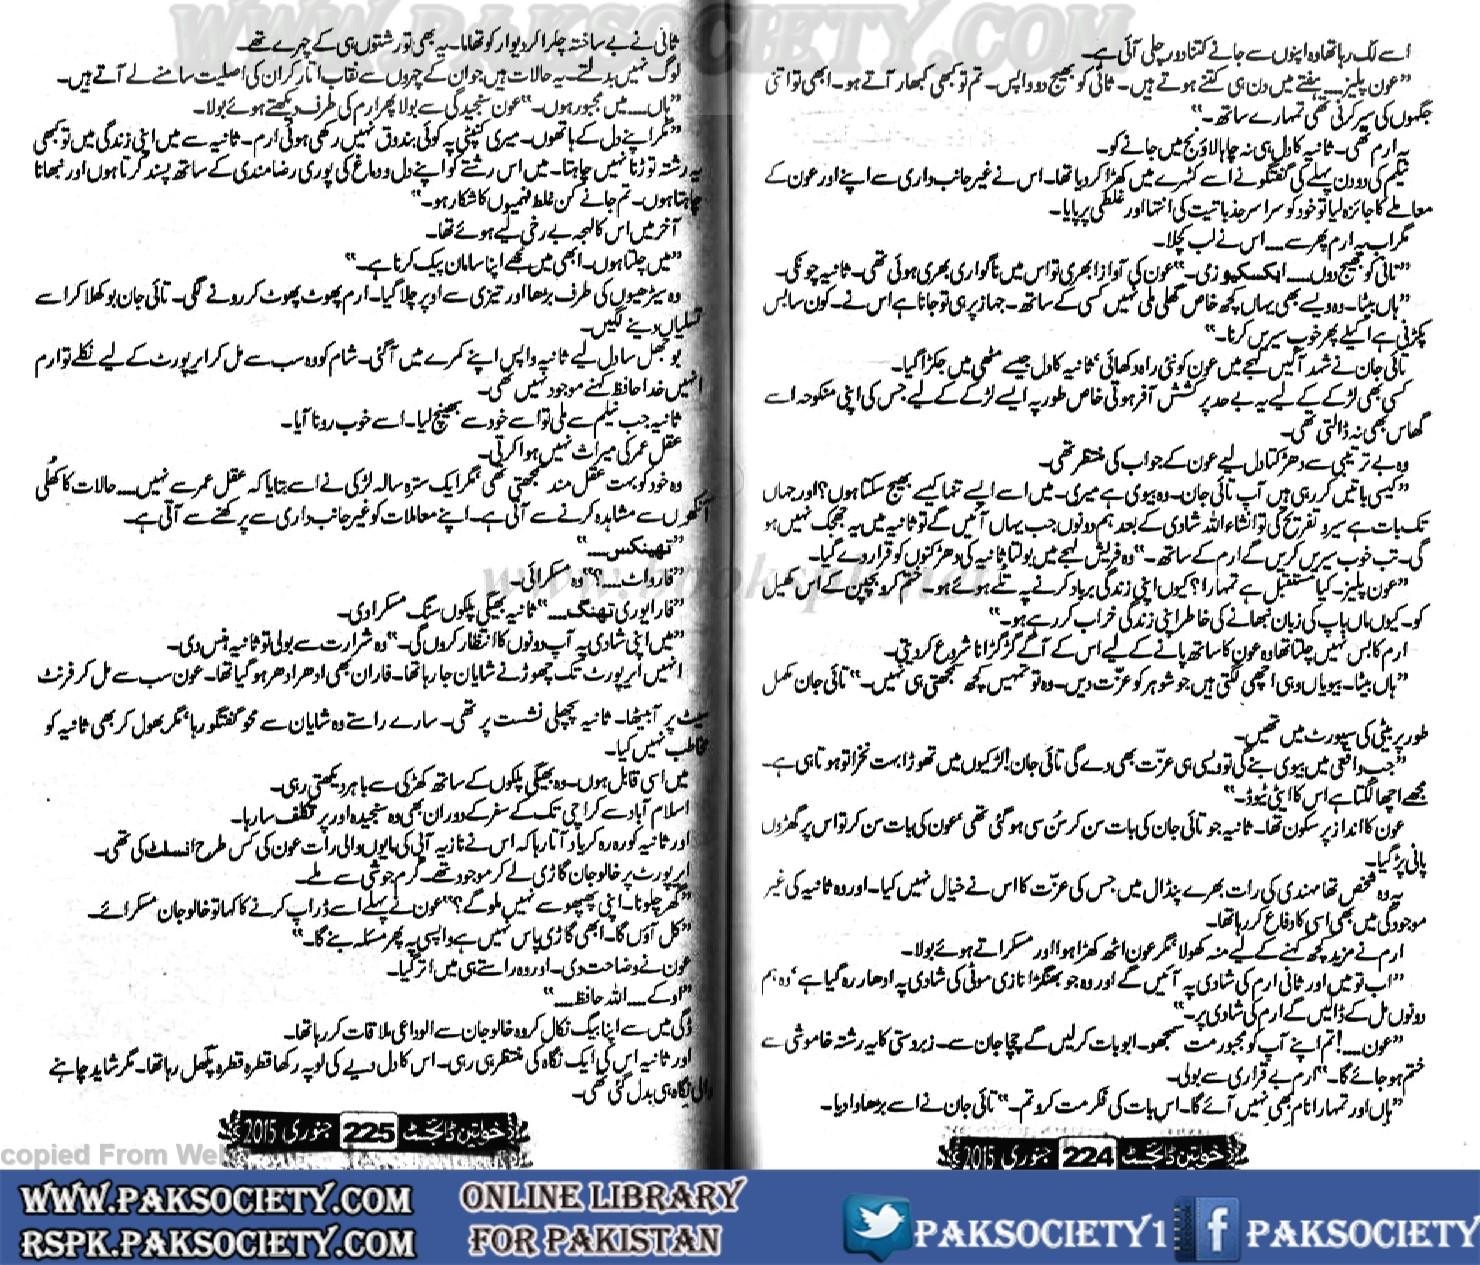 WWW.PAKSOCIETY.COM
اسے لگ رہا تھا وہ اپنوں سے جانے کتنا دور چلی آئی ہے۔
”عون پلیز۔۔۔ ہفتے میں دن ہی کتنے ہوتے ہیں۔ ثانی کو بھیج دو واپس۔ تم تو کبھی کبھار آتے ہو۔ ابھی تو اتنی
جگہوں کی سیر کرنی تھی تمہارے ساتھ۔“
یہ ارم تھی۔ ثانیہ کا دل ہی نہ چاہا لاؤنج میں جانے کو۔
نیلم کی دو دن پہلے کی گفتگو نے اسے کٹہرے میں کھڑا کر دیا تھا۔ اس نے غیر جانب داری سے اپنے اور عون کے
معاملے کا جائزہ لیا تو خود کو سراسر جذباتیت کی انتہا اور غلطی پر پایا۔
مگر اب یہ ارم پھر سے۔۔۔ اس نے لب کچلا۔
”ثانی کو بھیج دوں۔۔۔ ایکسکیوزمی۔“ عون کی آواز ابھری تو اس میں ناگواری بھری ہوئی تھی۔ ثانیہ چونکی۔
”ہاں بیٹا۔ وہ ویسے بھی یہاں کچھ خاص گھلی ملی نہیں کسی کے ساتھ۔ جہاز پر ہی تو جانا ہے اس نے۔ کون سا بس
پکڑنی ہے اکیلے پھر خوب سیریں کرنا۔“
تائی جان نے شہد آگیں لہجے میں عون کو نئی راہ دکھائی‘ ثانیہ کا دل جیسے مٹھی میں جکڑا گیا۔
کسی بھی لڑکے کے لیے یہ بے حد پرکشش آفر ہوتی خاص طور پہ ایسے لڑکے کے لیے جس کی اپنی منکوحہ اسے
گھاس بھی نہ ڈالتی تھی۔
وہ بے ترتیبی سے دھڑکتا دل لیے عون کے جواب کی منتظر تھی۔
”کیسی باتیں کر رہی ہیں آپ تائی جان۔ وہ بیوی ہے میری۔ میں اسے ایسے تنہا کیسے بھیج سکتا ہوں؟ اور جہاں
تک بات ہے سیر و تفریح کی تو انشاء اللہ شادی کے بعد ہم دونوں جب یہاں آئیں گے تو ثانیہ میں یہ جھجک نہیں ہو
گی۔ تب خوب سیریں کریں گے ارم کے ساتھ۔“ وہ فریش لہجے میں بولتا ثانیہ کی دھڑکنوں کو قرار دے گیا۔
”عون پلیز۔ کیا مستقبل ہے تمہارا؟ کیوں اپنی زندگی برباد کرنے پہ تلے ہوئے ہو۔ ختم کرو بچپن کے اس کھیل
کو۔ کیوں ماں باپ کی زبان نبھانے کی خاطر اپنی زندگی خراب کر رہے ہو۔“
ارم کا بس نہیں چلتا تھا وہ عون کا ساتھ پانے کے لیے اس کے آگے گڑگڑانا شروع کر دیتی۔
”ہاں بیٹا۔ بیویاں وہی اچھی لگتی ہیں جو شوہر کو عزت دیں۔ وہ تو تمہیں کچھ سمجھتی ہی نہیں۔“ تائی جان مکمل
طور پر بیٹی کی سپورٹ میں تھیں۔
”جب واقعی میں بیوی بنے گی تو ویسی ہی عزت بھی دے گی تائی جان! لڑکیوں میں تھوڑا بہت نخرا تو ہوتا ہی ہے۔
مجھے اچھا لگتا ہے اس کا ایٹی ٹیوڈ۔“
عون کا انداز پر سکون تھا۔ ثانیہ جو تائی جان کی بات سن کر سُن سی ہو گئی تھی‘ عون کی بات سن کر تو اس پر گھڑوں
پانی پڑ گیا۔
یہ وہ شخص تھا مہندی کی رات بھرے پنڈال میں جس کی عزت کا اس نے خیال نہیں کیا۔ اور وہ ثانیہ کی غیر
موجودگی میں بھی اسی کا دفاع کر رہا تھا۔
ارم نے مزید کچھ کہنے کے لیے منہ کھولا‘ مگر عون اٹھ کھڑا ہوا اور مسکراتے ہوئے بولا۔
”اب تو میں اور ثانی ارم کی شادی پہ آئیں گے اور وہ جو بھنگڑا نازی موٹی کی شادی پہ ادھار رہ گیا ہے‘ وہ ہم
دونوں مل کے ڈالیں گے ارم کی شادی پر۔“
”عون۔۔۔! تم اپنے آپ کو مجبور مت سمجھو۔ ابو بات کر لیں گے چچا جان سے۔ زبردستی کا یہ رشتہ خاموشی سے
ختم ہو جائے گا۔“ ارم بے قراری سے بولی۔
”ہاں اور تمہارا نام بھی نہیں آئے گا۔ اس بات کی فکر مت کرو تم۔“ تائی جان نے اسے بڑھاوا دیا۔
خواتین ڈائجسٹ 224 جنوری 2015
ثانی نے بے ساختہ چکرا کر دیوار کو تھاما۔ یہ بھی تو رشتوں ہی کے چہرے تھے۔
لوگ نہیں بدلتے۔ یہ حالات ہیں جو ان کے چہروں سے نقاب اتار کر ان کی اصلیت سامنے لے آتے ہیں۔
”ہاں۔۔۔ میں مجبور ہوں۔“ عون سنجیدگی سے بولا پھر ارم کی طرف دیکھتے ہوئے بولا۔
”مگر اپنے دل کے ہاتھوں۔ میری کنپٹی پہ کوئی بندوق نہیں رکھی ہوئی ارم۔ ثانیہ سے میں اپنی زندگی میں تو کبھی
یہ رشتہ توڑنا نہیں چاہتا۔ میں اس رشتے کو اپنے دل و دماغ کی پوری رضامندی کے ساتھ پسند کرتا ہوں اور نبھانا
چاہتا ہوں۔ تم جانے کن غلط فہمیوں کا شکار ہو۔“
آخر میں اس کا لہجہ بے رخی لیے ہوئے تھا۔
”میں چلتا ہوں۔ ابھی میں نے اپنا سامان پیک کرنا ہے۔“
وہ سیڑھیوں کی طرف بڑھا اور تیزی سے اوپر چلا گیا۔ ارم پھوٹ پھوٹ کر رونے لگی۔ تائی جان بوکھلا کر اسے
تسلیاں دینے لگیں۔
بوجھل سا دل لیے ثانیہ واپس اپنے کمرے میں آ گئی۔ شام کو وہ سب سے مل کر ایرپورٹ کے لیے نکلے تو ارم
انہیں خدا حافظ کہنے موجود نہیں تھی۔
ثانیہ جب نیلم سے ملی تو اسے خود سے بھینچ لیا۔ اسے خوب رونا آیا۔
عقل عمر کی میراث نہیں ہوا کرتی۔
وہ خود کو بہت عقل مند سمجھتی تھی‘ مگر ایک سترہ سالہ لڑکی نے اسے بتایا کہ عقل عمر سے نہیں۔۔۔ حالات کا کھلی
آنکھوں سے مشاہدہ کرنے سے آتی ہے۔ اپنے معاملات کو غیر جانب داری سے پرکھنے سے آتی ہے۔
”تھینکس۔۔۔“
”فار واٹ۔۔۔؟“ وہ مسکرائی۔
”فار ایوری تھنگ۔۔۔“ ثانیہ بھیگی پلکوں سنگ مسکرا دی۔
”میں اپنی شادی پہ آپ دونوں کا انتظار کروں گی۔“ وہ شرارت سے بولی تو ثانیہ ہنس دی۔
انہیں ایرپورٹ تک چھوڑنے شایان جا رہا تھا۔ فاران بھی ادھر ادھر ہو گیا تھا۔ عون سب سے مل کر فرنٹ
سیٹ پر آ بیٹھا۔ ثانیہ پچھلی نشست پر تھی۔ سارے راستے وہ شایان سے محو گفتگو رہا‘ مگر بھول کر بھی ثانیہ کو
مخاطب نہیں کیا۔
میں اسی قابل ہوں۔ وہ بھیگی پلکوں کے ساتھ کھڑکی سے باہر دیکھتی رہی۔
اسلام آباد سے کراچی تک کے سفر کے دوران بھی وہ سنجیدہ اور پر تکلف سا رہا۔
اور ثانیہ کو رہ رہ کر یاد آتا رہا کہ اس نے نازیہ آپی کی مایوں والی رات عون کی کس طرح انسلٹ کی تھی۔
ایرپورٹ پر خالو جان گاڑی لے کر موجود تھے۔ گرم جوشی سے ملے۔
”گھر چلو نا۔ اپنی پھپھو سے نہیں ملو گے؟“ عون نے پہلے اسے ڈراپ کرنے کا کہا تو خالو جان مسکرائے۔
”کل آؤں گا۔ ابھی گاڑی پاس نہیں ہے واپسی پہ پھر مسئلہ بنے گا۔“
عون نے وضاحت دی۔ اور وہ راستے ہی میں اتر گیا۔
”اوکے۔۔۔ اللہ حافظ۔۔۔“
ڈگی میں سے اپنا بیگ نکال کر وہ خالو جان سے الوداعی ملاقات کر رہا تھا۔
اور ثانیہ اس کی ایک نگاہ کی منتظر ہی رہی۔ اس کا دل دیے کی لو پہ رکھا قطرہ قطرہ پگھل رہا تھا۔ مگر شاید چاہنے
والی نگاہ ہی بدل گئی تھی۔
خواتین ڈائجسٹ 225 جنوری 2015
copied From Web
WWW.PAKSOCIETY.COM
RSPK.PAKSOCIETY.COM
ONLINE LIBRARY
FOR PAKISTAN
PAKSOCIETY1
PAKSOCIETY